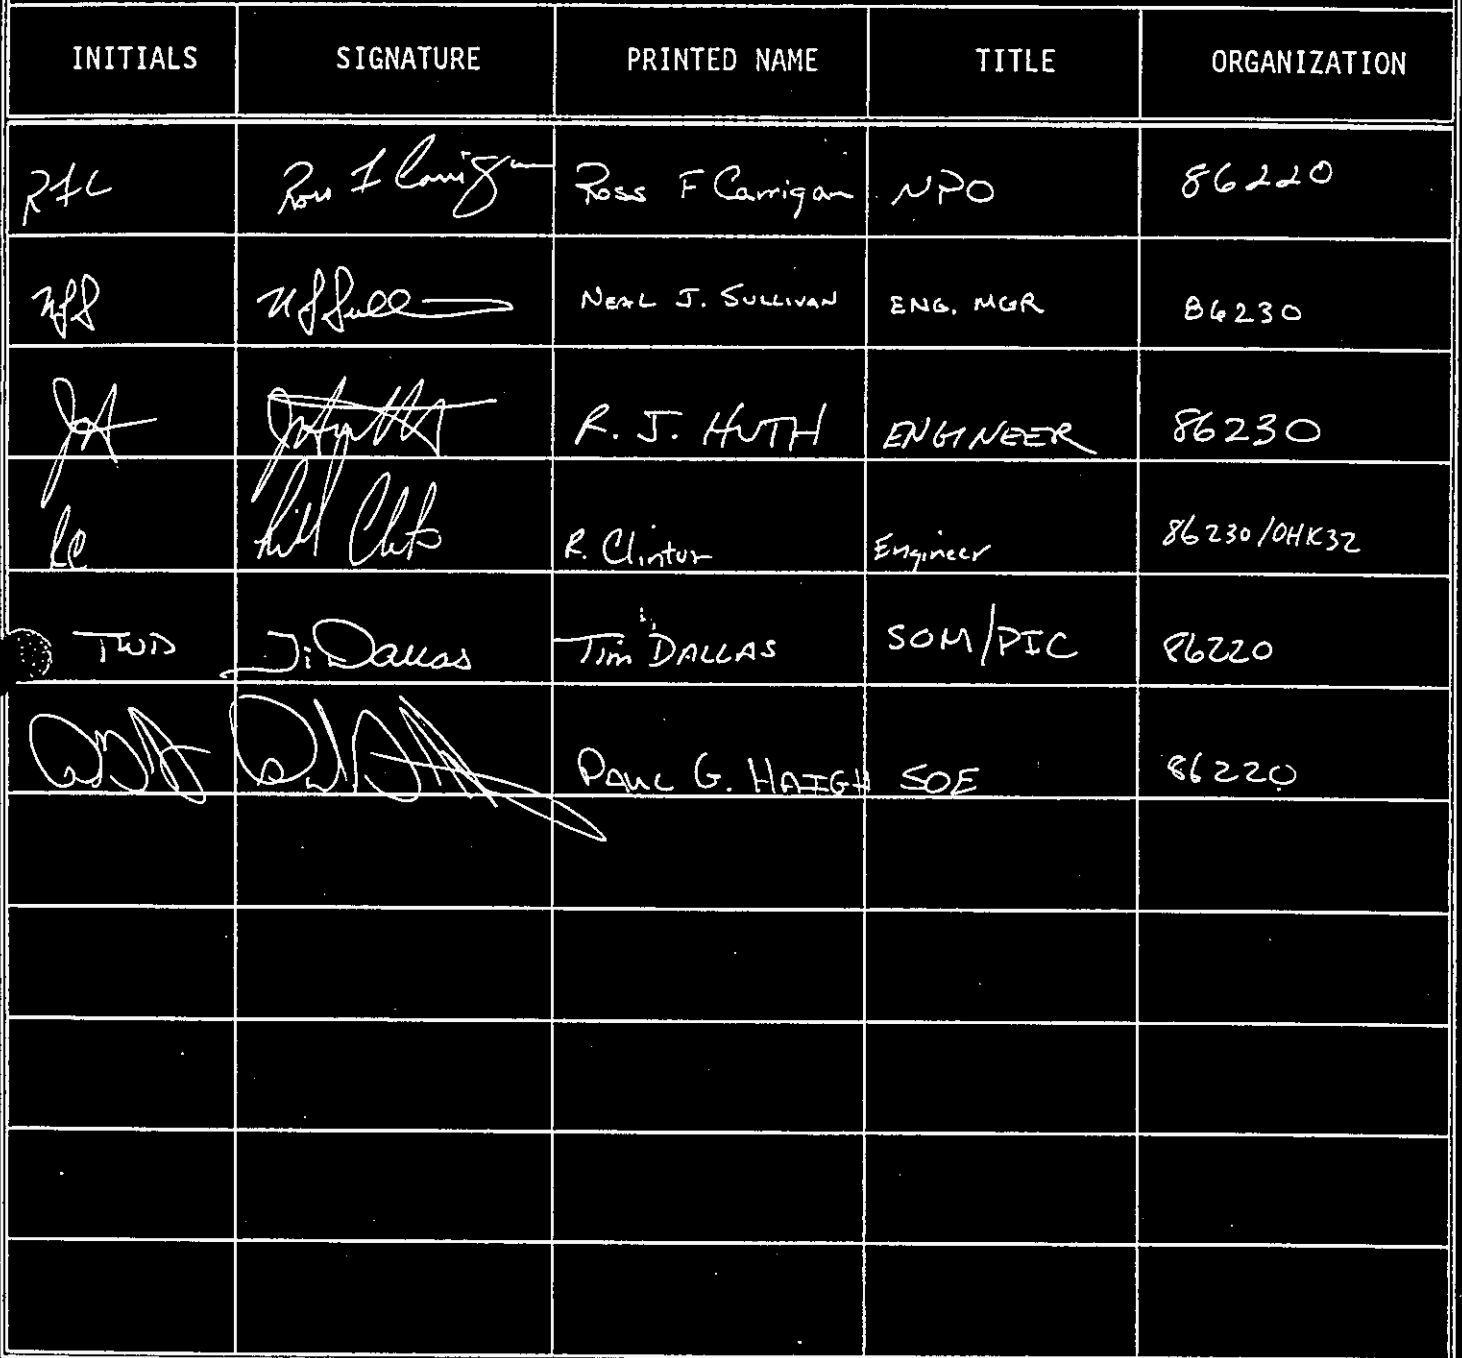 INITIALS SIGNATURE PRINTED NAME TITLE ORGANIZATION
RFC Ross F Carrigan Ross F Carrigan NPO 86220
NJS NJ Sull NEAL J. SULLIVAN ENG. MGR 86230
R. J. HUTH ENGINEER 86230
RC R. Clinton Engineer 86230/OHK32
TWD T. Dallas Tim DALLAS SOM/PIC 86220
PAUL G. HAIGH SOE 86220